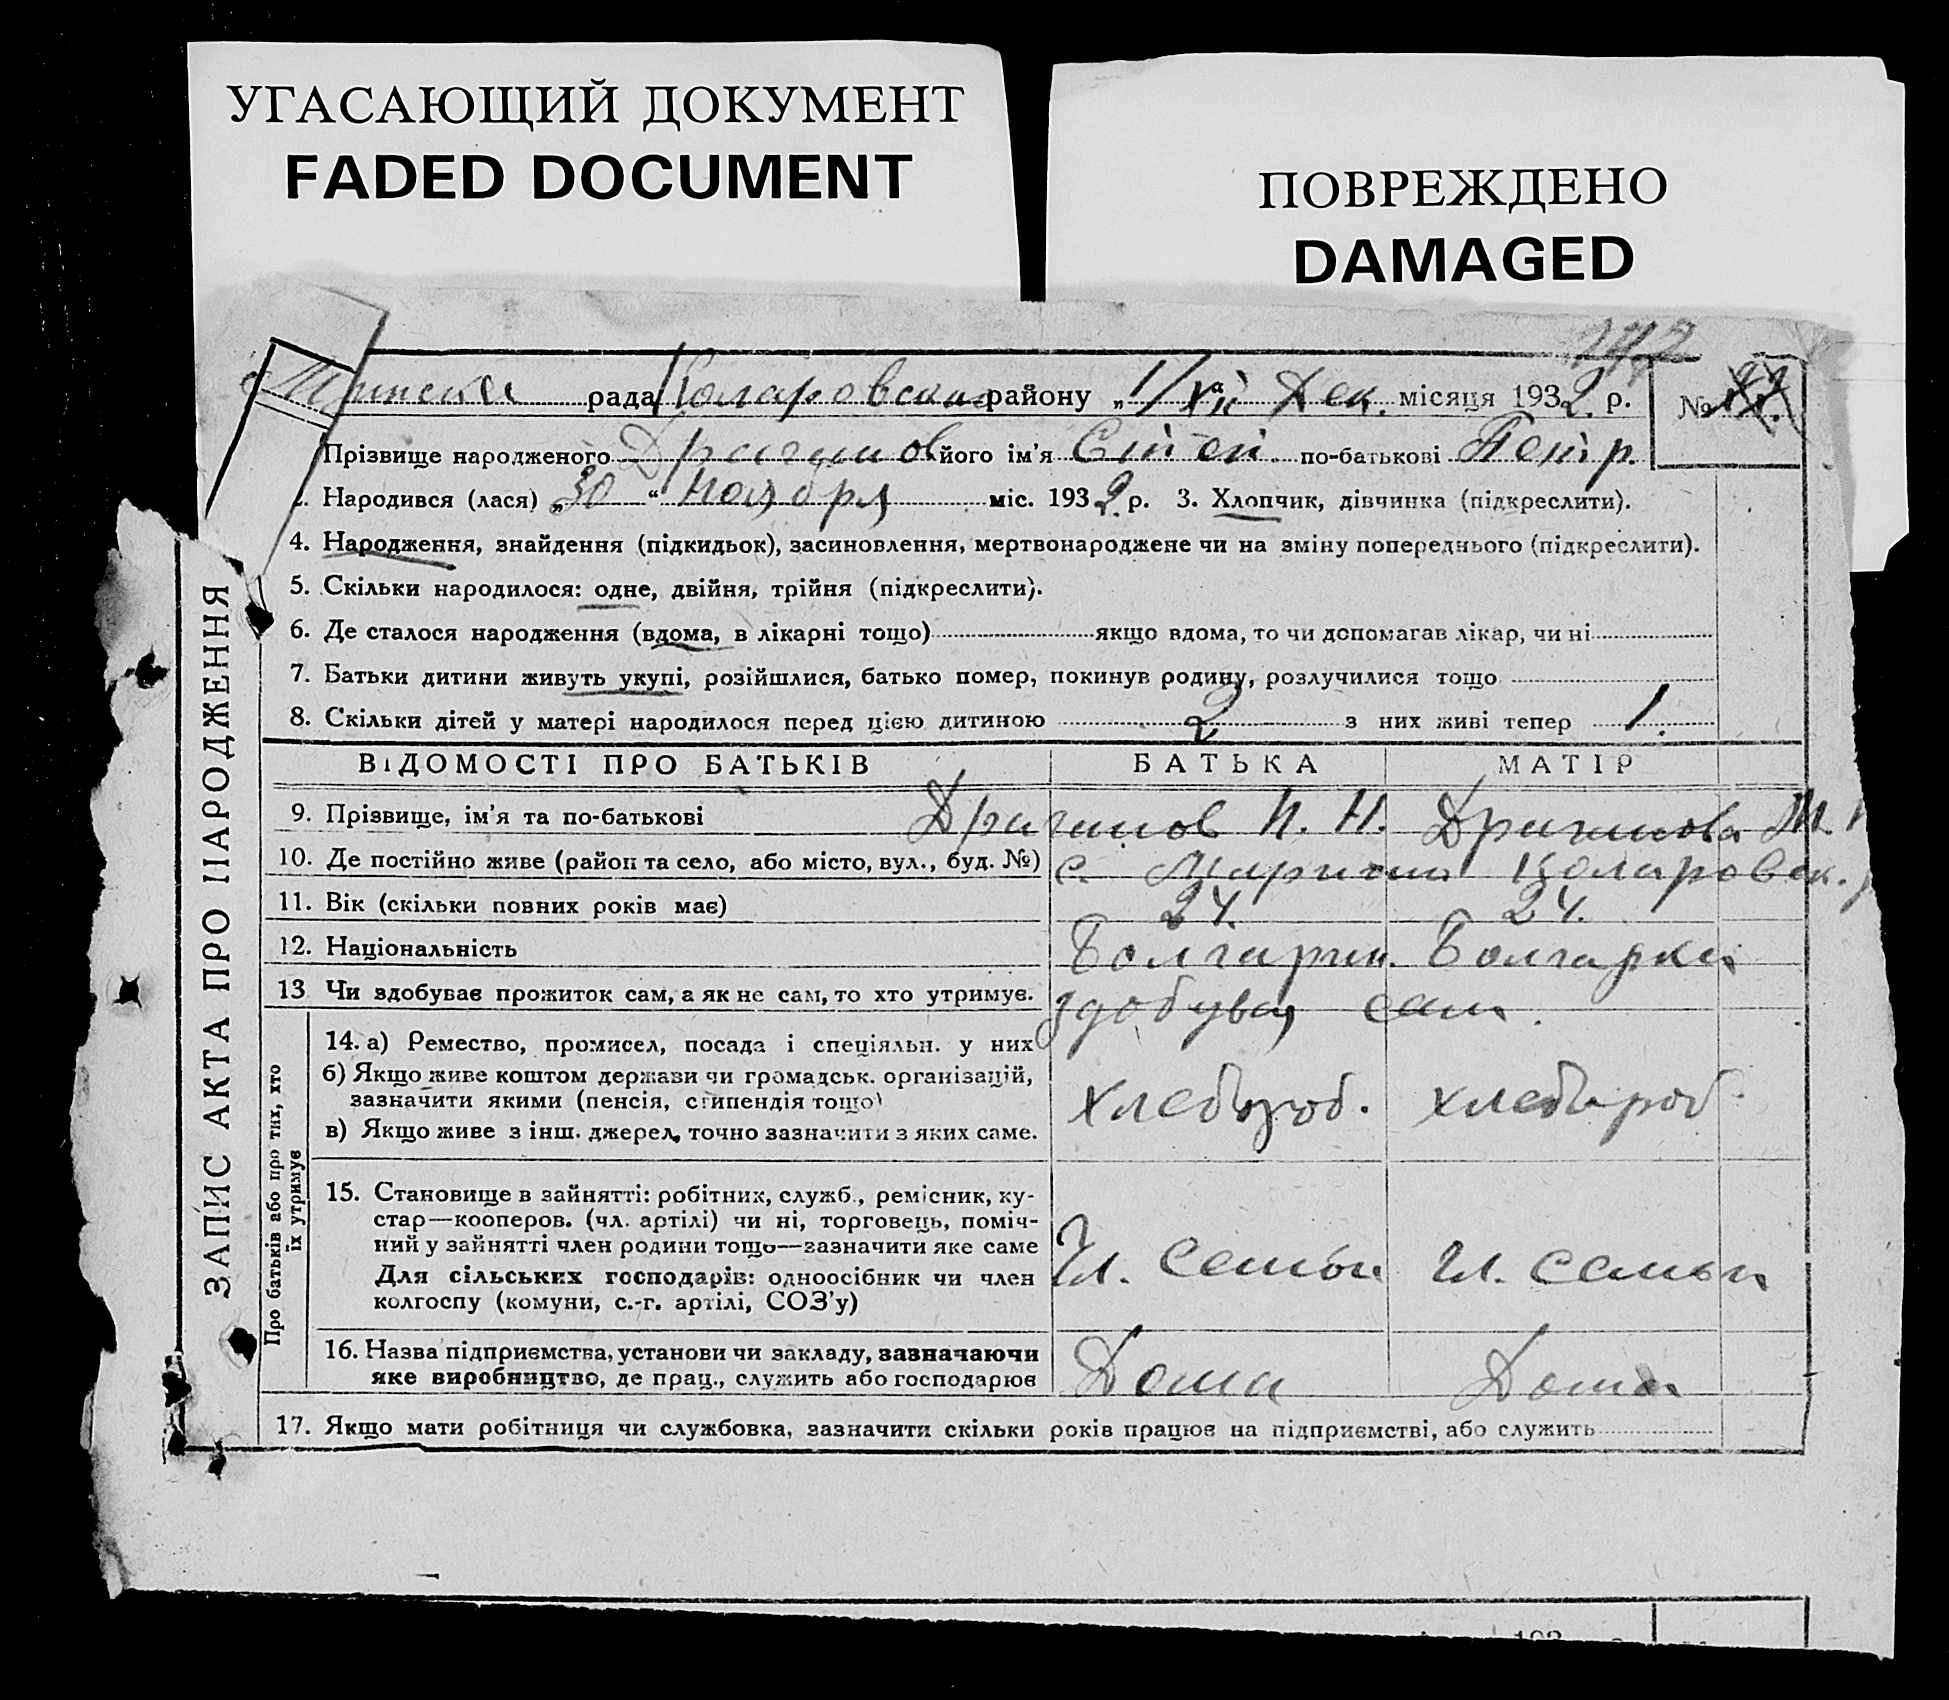 УГАСАЮЩИЙ ДОКУМЕНТ
FADED DOCUMENT
ПОВРЕЖДЕНО
DAMAGED
рада Коларовская району „1/XII Дек. місяця 1932. р. №
Прізвище народженого Драганов його ім'я по-батькові Петр.
Народився (лася) „30“ Ноября міс. 1932 р. 3. Хлопчик, дівчинка (підкреслити).
4. Народження, знайдення (підкидьок), засиновлення, мертвонароджене чи на зміну попереднього (підкреслити).
5. Скільки народилося: одне, двійня, трійня (підкреслити).
6. Де сталося народження (вдома, в лікарні тощо) якщо вдома, то чи допомагав лікар, чи ні
7. Батьки дитини живуть укупі, розійшлися, батько помер, покинув родину, розлучилися тощо
8. Скільки дітей у матері народилося перед цією дитиною 2 з них живі тепер 1.
ВІДОМОСТІ ПРО БАТЬКІВ БАТЬКА МАТІР
9. Прізвище, ім'я та по-батькові Драганов П. Н. Драганова М.
10. Де постійно живе (район та село, або місто, вул., буд. №) с. Коларовск.
11. Вік (скільки повних років має) 24. 24.
12. Національність Болгарин. Болгарка
13 Чи здобуває прожиток сам, а як не сам, то хто утримує. здобувая сам.
14. а) Ремество, промисел, посада і спеціяльн. у них
б) Якщо живе коштом держави чи громадськ. організацій,
зазначити якими (пенсія, стипендія тощо)
в) Якщо живе з інш. джерел, точно зазначити з яких саме.
хлебороб. хлебороб.
15. Становище в зайнятті: робітник, служб., ремісник, ку-
стар—кооперов. (чл. артілі) чи ні, торговець, поміч-
ний у зайнятті член родини тощо—зазначити яке саме
Для сільських господарів: одноосібник чи член
колгоспу (комуни, с.-г. артілі, СОЗ'у)
Чл. семьи чл. семьи
16. Назва підприємства, установи чи закладу, зазначаючи
яке виробництво, де прац., служить або господарює
Дома Дома
17. Якщо мати робітниця чи службовка, зазначити скільки років працює на підприємстві, або служить
ЗАПИС АКТА ПРО НАРОДЖЕННЯ
Про батьків або про тих, хто
їх утримує